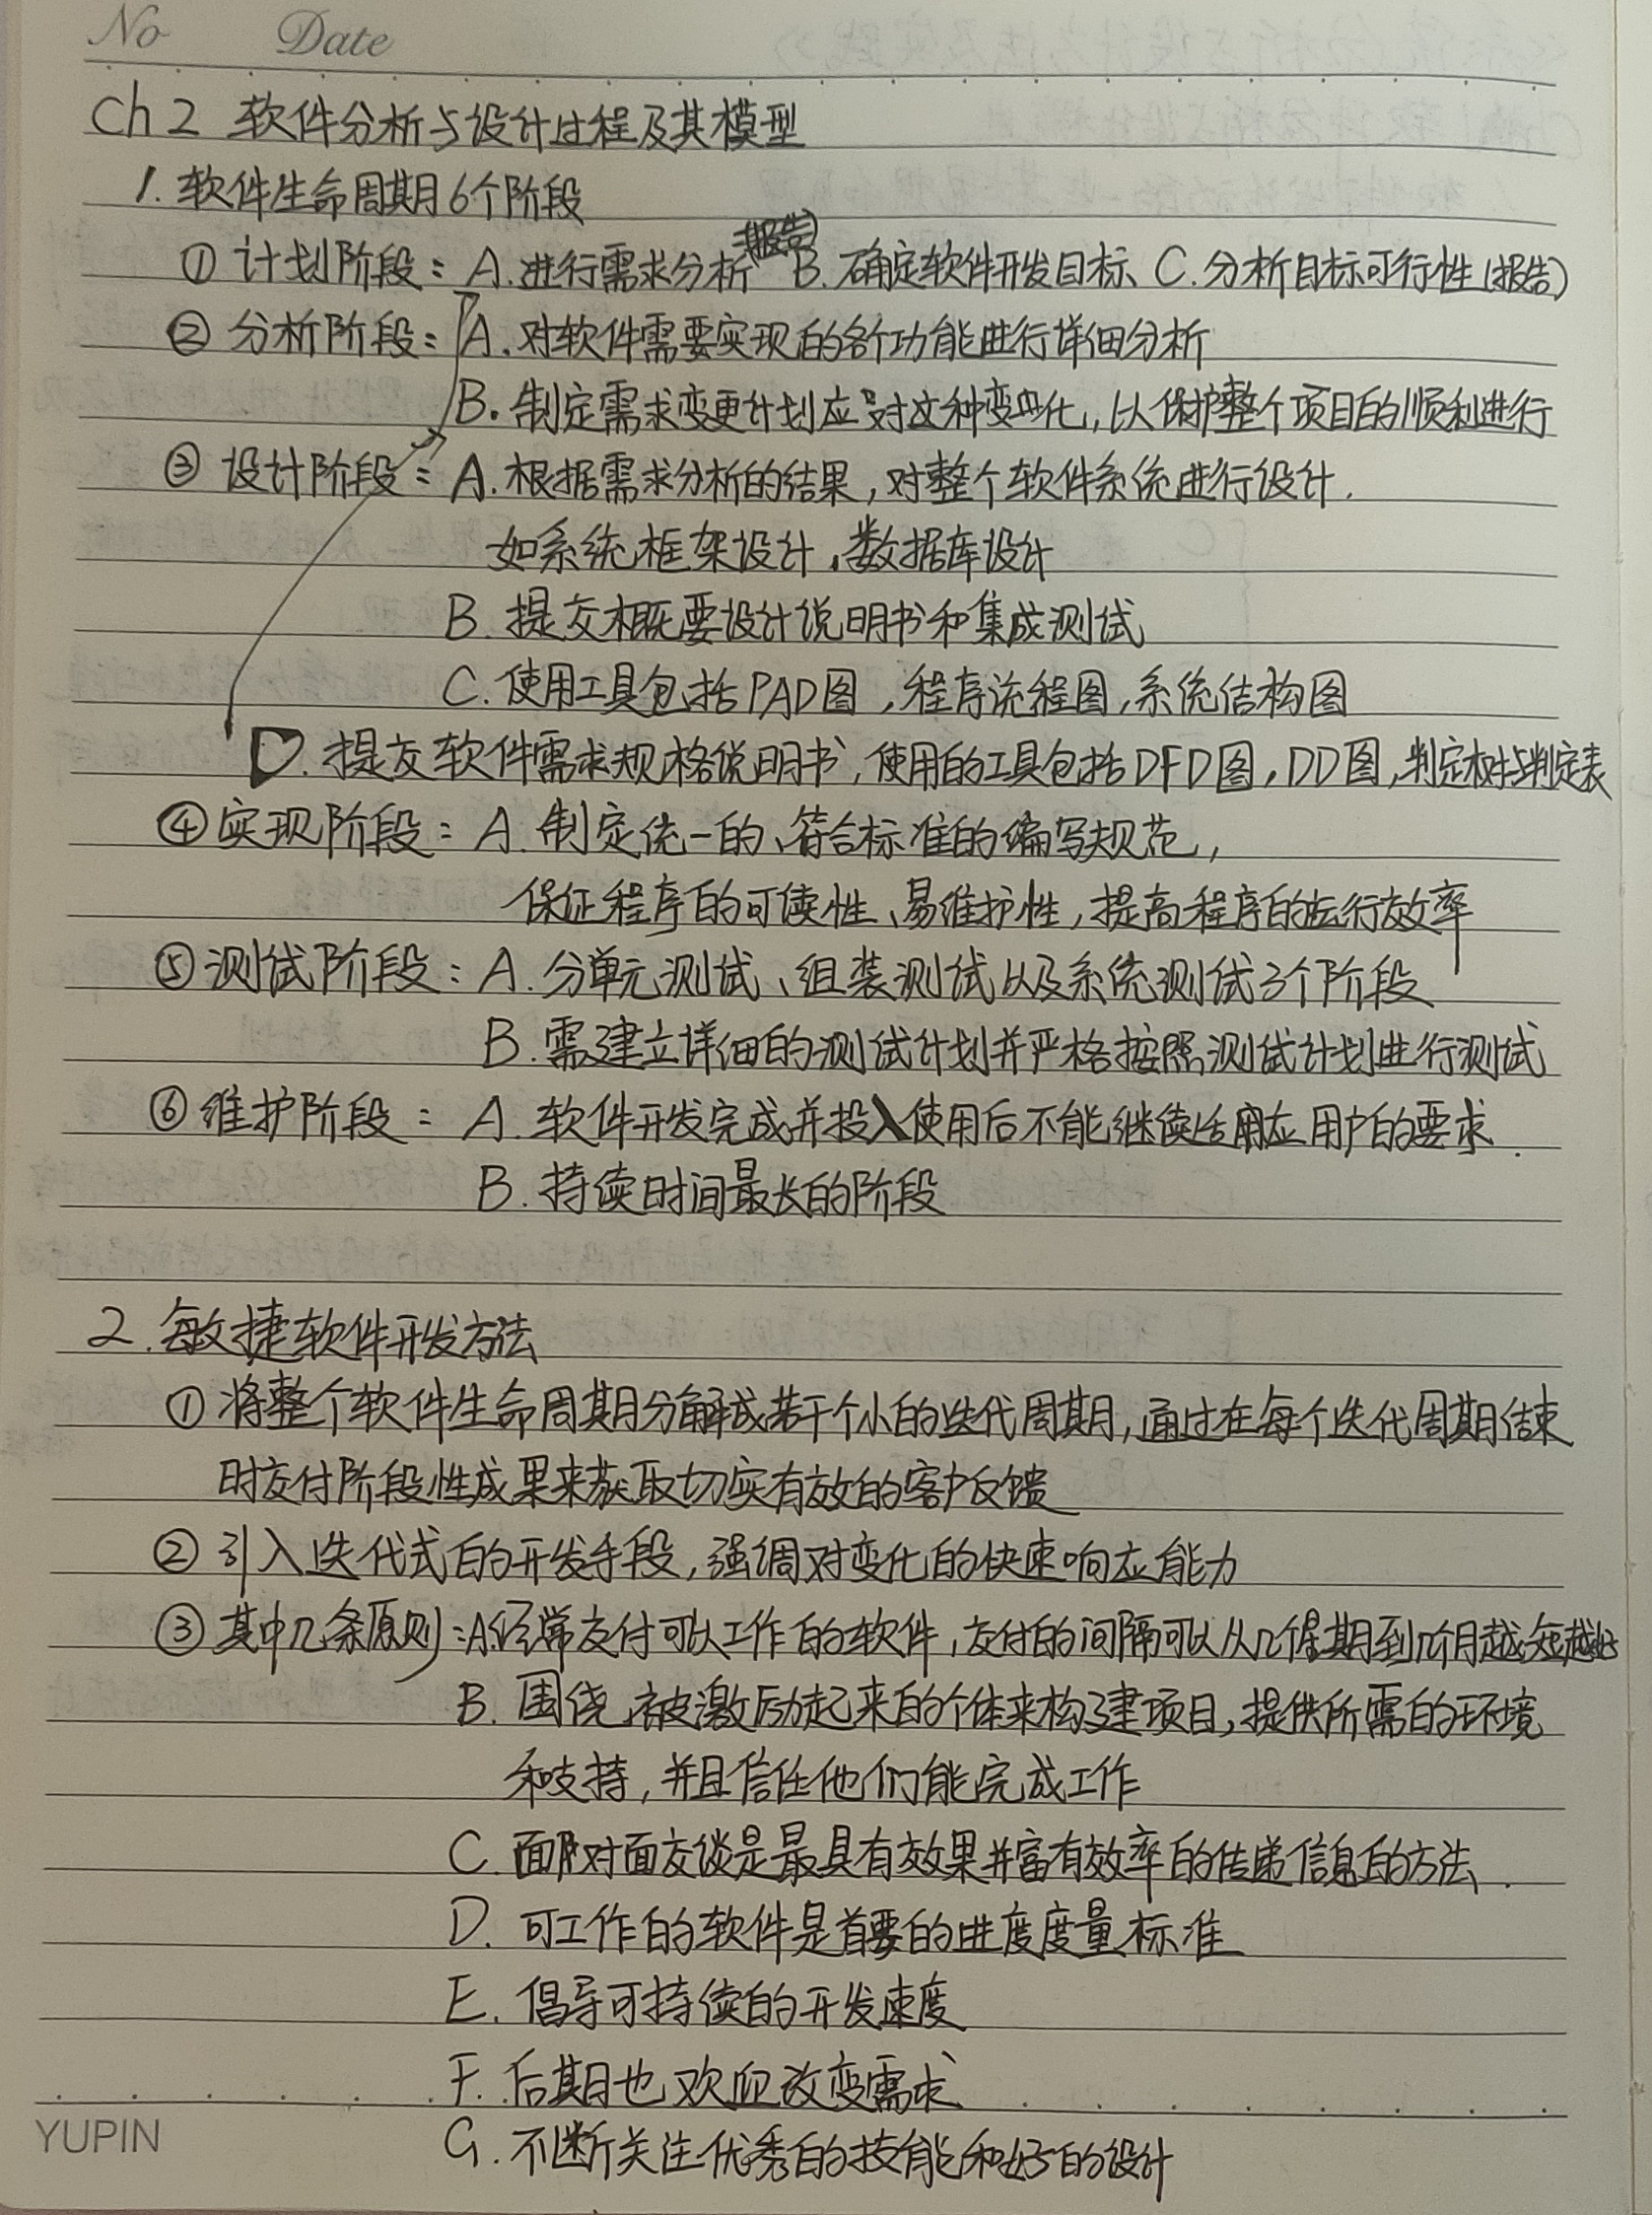 No Date
Ch2 软件分析与设计过程及其模型
1. 软件生命周期6个阶段
① 计划阶段: A. 进行需求分析 B. 确定软件开发目标、C. 分析目标可行性(报告)
② 分析阶段: A. 对软件需要实现的各个功能进行详细分析
B. 制定需求变更计划应对这种变化,以保护整个项目的顺利进行
③ 设计阶段: A. 根据需求分析的结果,对整个软件系统进行设计.
如系统框架设计,数据库设计
B. 提交概要设计说明书和集成测试
C. 使用工具包括PAD图,程序流程图,系统结构图
D. 提交软件需求规格说明书,使用的工具包括DFD图,DD图,判定树与判定表
④ 实现阶段: A. 制定统一的、符合标准的编写规范,
保证程序的可读性、易维护性,提高程序的运行效率
⑤ 测试阶段: A. 分单元测试、组装测试以及系统测试3个阶段
B. 需建立详细的测试计划并严格按照测试计划进行测试
⑥ 维护阶段: A. 软件开发完成并投入使用后不能继续适应用户的要求.
B. 持续时间最长的阶段
2. 敏捷软件开发方法
① 将整个软件生命周期分解成若干个小的迭代周期,通过在每个迭代周期结束
时交付阶段性成果来获取切实有效的客户反馈
② 引入迭代式的开发手段,强调对变化的快速响应能力
③ 其中几条原则: A. 经常交付可以工作的软件,交付的间隔可以从几个星期到几个月越短越好
B. 围绕被激励起来的个体来构建项目,提供所需的环境
和支持,并且信任他们能完成工作
C. 面对面交谈是最具有效果并富有效率的传递信息的方法.
D. 可工作的软件是首要的进度度量标准
E. 倡导可持续的开发速度
F. 后期也欢迎改变需求
G. 不断关注优秀的技能和好的设计
YUPIN